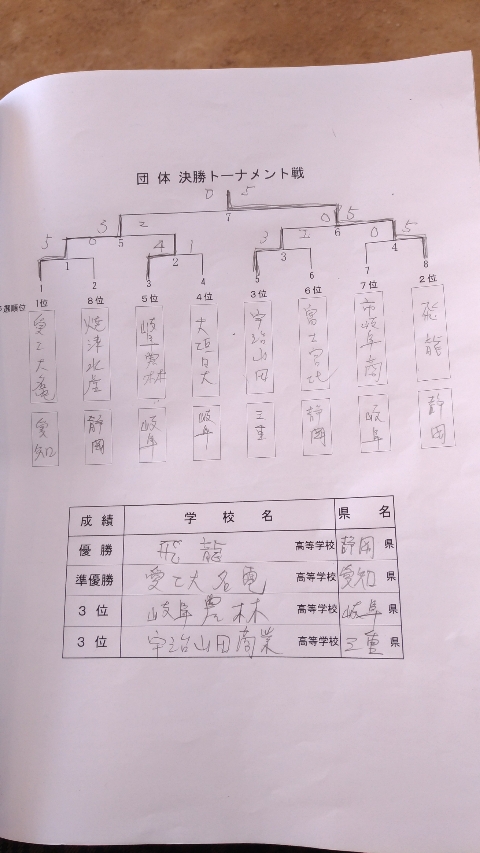 団体 決勝トーナメント戦
0 5
7
3 2 0 5
5 6
5 0 4 1 3 2 0 5
1 2 3 4
1 2 3 4 5 6 7 8
選順位 1位 8位 5位 4位 3位 6位 7位 2位
愛工大電 焼津水産 岐阜農林 大垣日大 宇治山田 富士宮北 市岐阜商 飛龍
愛知 静岡 岐阜 岐阜 三重 静岡 岐阜 静岡
成績 学校名 県名
優勝 飛龍 高等学校 静岡 県
準優勝 愛工大名電 高等学校 愛知 県
3位 岐阜農林 高等学校 岐阜 県
3位 宇治山田商業 高等学校 三重 県